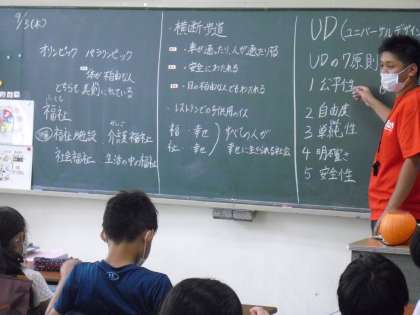 9/3(木)
オリンピック パラリンピック
体が不自由な人
どちらも
ふくし
福祉
福祉施設
介護福祉
社会福祉
生活の中の福祉
・横断歩道
・車が通ったり、人が通ったりする
・安全にわたれる
・目の不自由な人でもわたれる
・レストランでの子供用のイス
福…幸せ
祉…幸せ
すべての人が
幸せに生きられる社会
UD(ユニバーサルデザイン
UDの7原則
1 公平性
2 自由度
3 単純性
4 明確さ
5 安全性